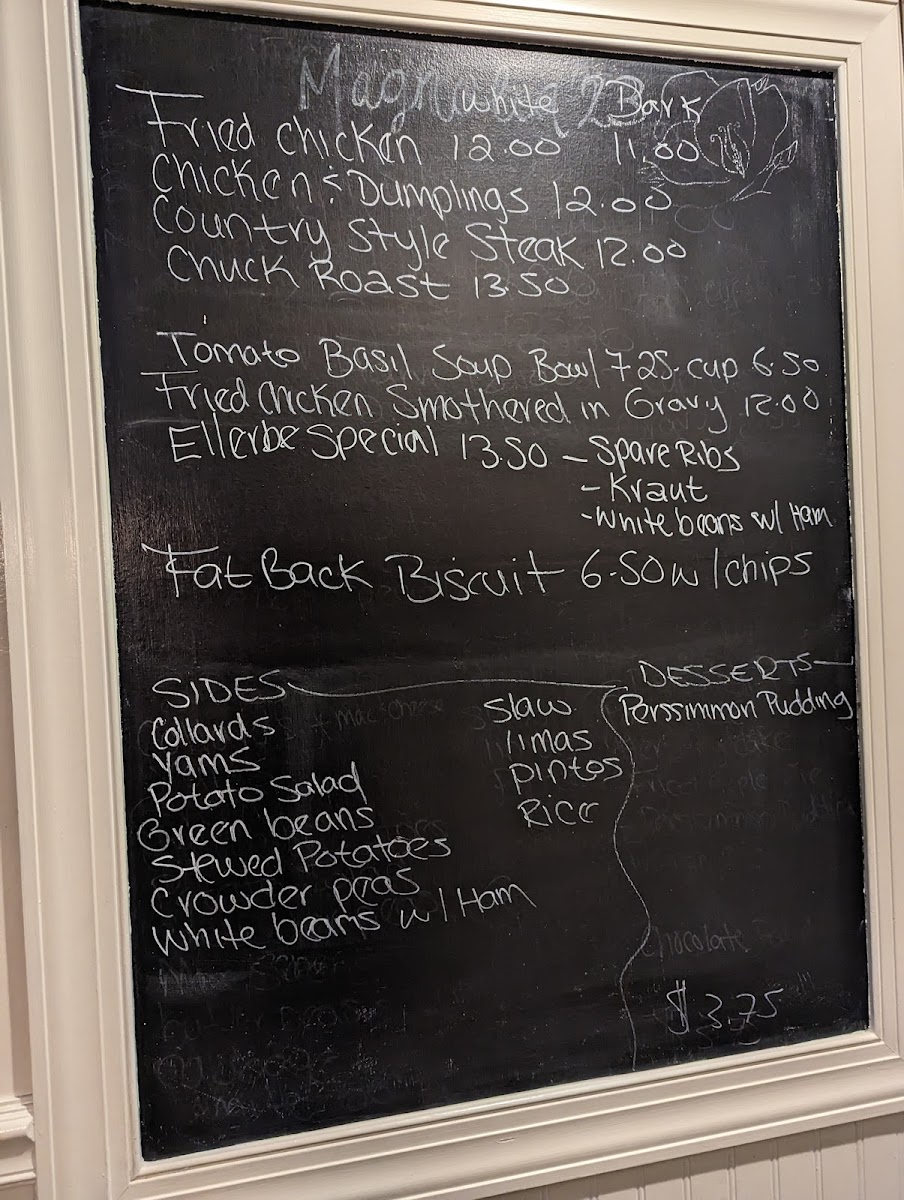 Magn White 2 Dark
Fried Chicken 12.00 11.00
Chicken & Dumplings 12.00
Country Style Steak 12.00
Chuck Roast 13.50
Tomato Basil Soup Bowl 7.25-cup 6.50
Fried Chicken Smothered in Gravy 12.00
Ellerbe Special 13.50 - Spare Ribs
- Kraut
- White beans w/ Ham
Fat Back Biscuit 6.50 w/chips
SIDES
Collards
Yams
Potato Salad
Green beans
Stewed Potatoes
Crowder peas
White beans w/ Ham
Slaw
limas
pintos
Rice
DESSERTS
Perssimmon Pudding
Chocolate
$3.75